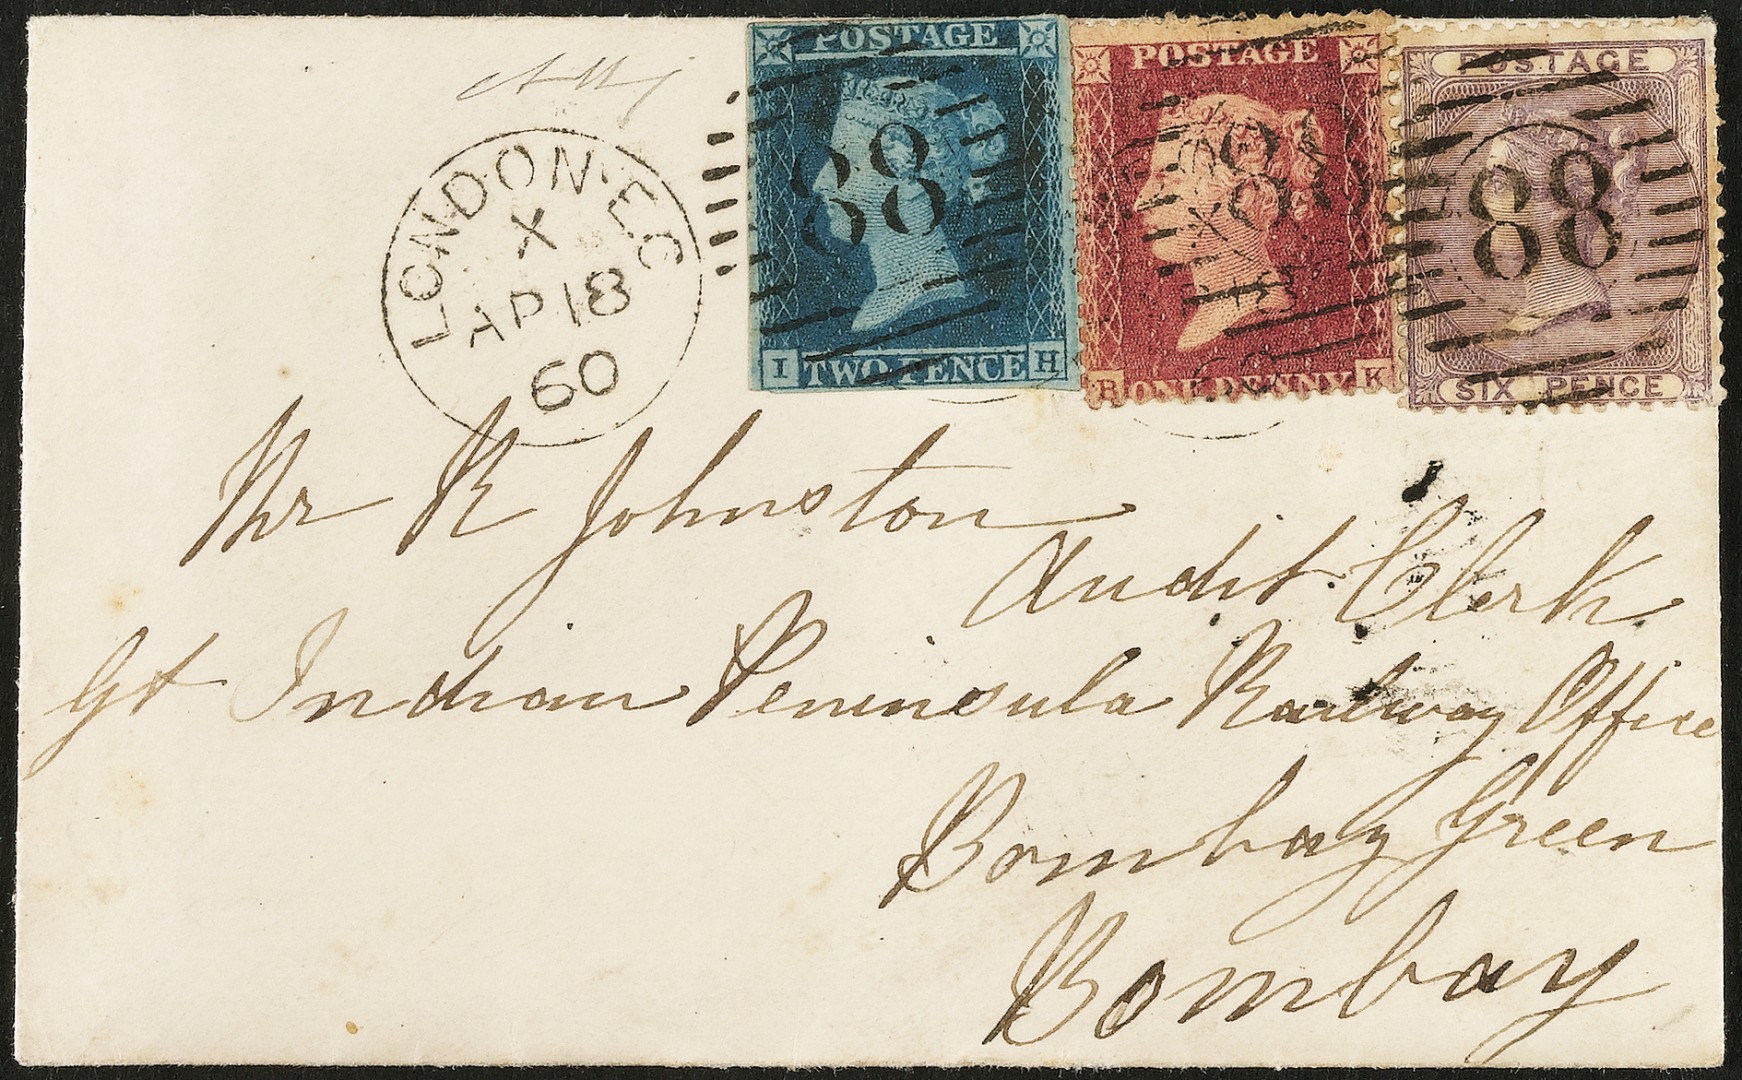 POSTAGE
88
I TWO PENCE H
POSTAGE
88
R ONE PENNY K
POSTAGE
88
SIX PENCE
LONDON·EC
X
AP 18
60
Mr R Johnston
Audit Clerk
Gt Indian Peninsula Railway Office
Bombay Green
Bombay